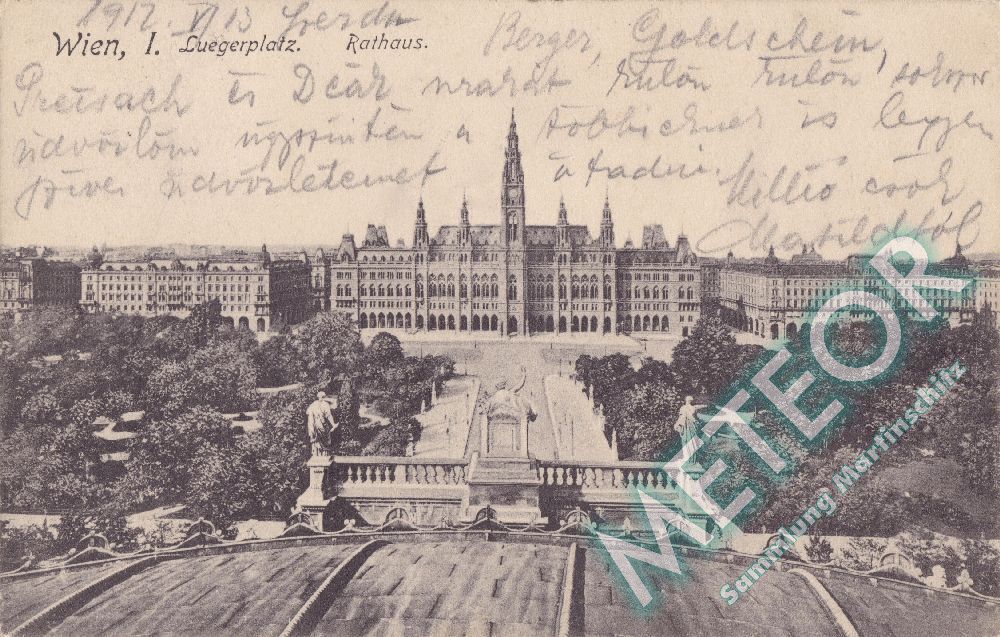 1912. VI 13 Szerda
Wien, I. Luegerplatz. Rathaus.
Berger, Goldschein,
Preisach és Deák urakat külön külön, sokszor
üdvözlöm úgyszintén a többieket is legyen
szives üdvözletemet átadni. Millió csók
Matildtól
METEOR
Sammlung Martinschitz